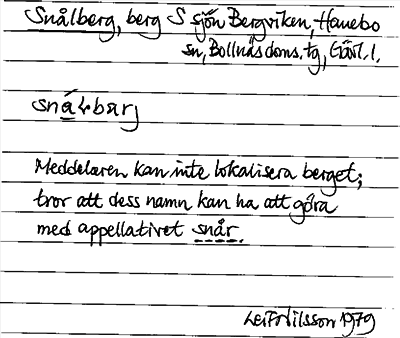 Snålberg, berg S sjön Bergviken, Hanebo
sn, Bollnäs doms. tg, Gävl. l.
snálbarj
Meddelaren kan inte lokalisera berget;
tror att dess namn kan ha att göra
med appellativet snår.
Leif Nilsson 1979